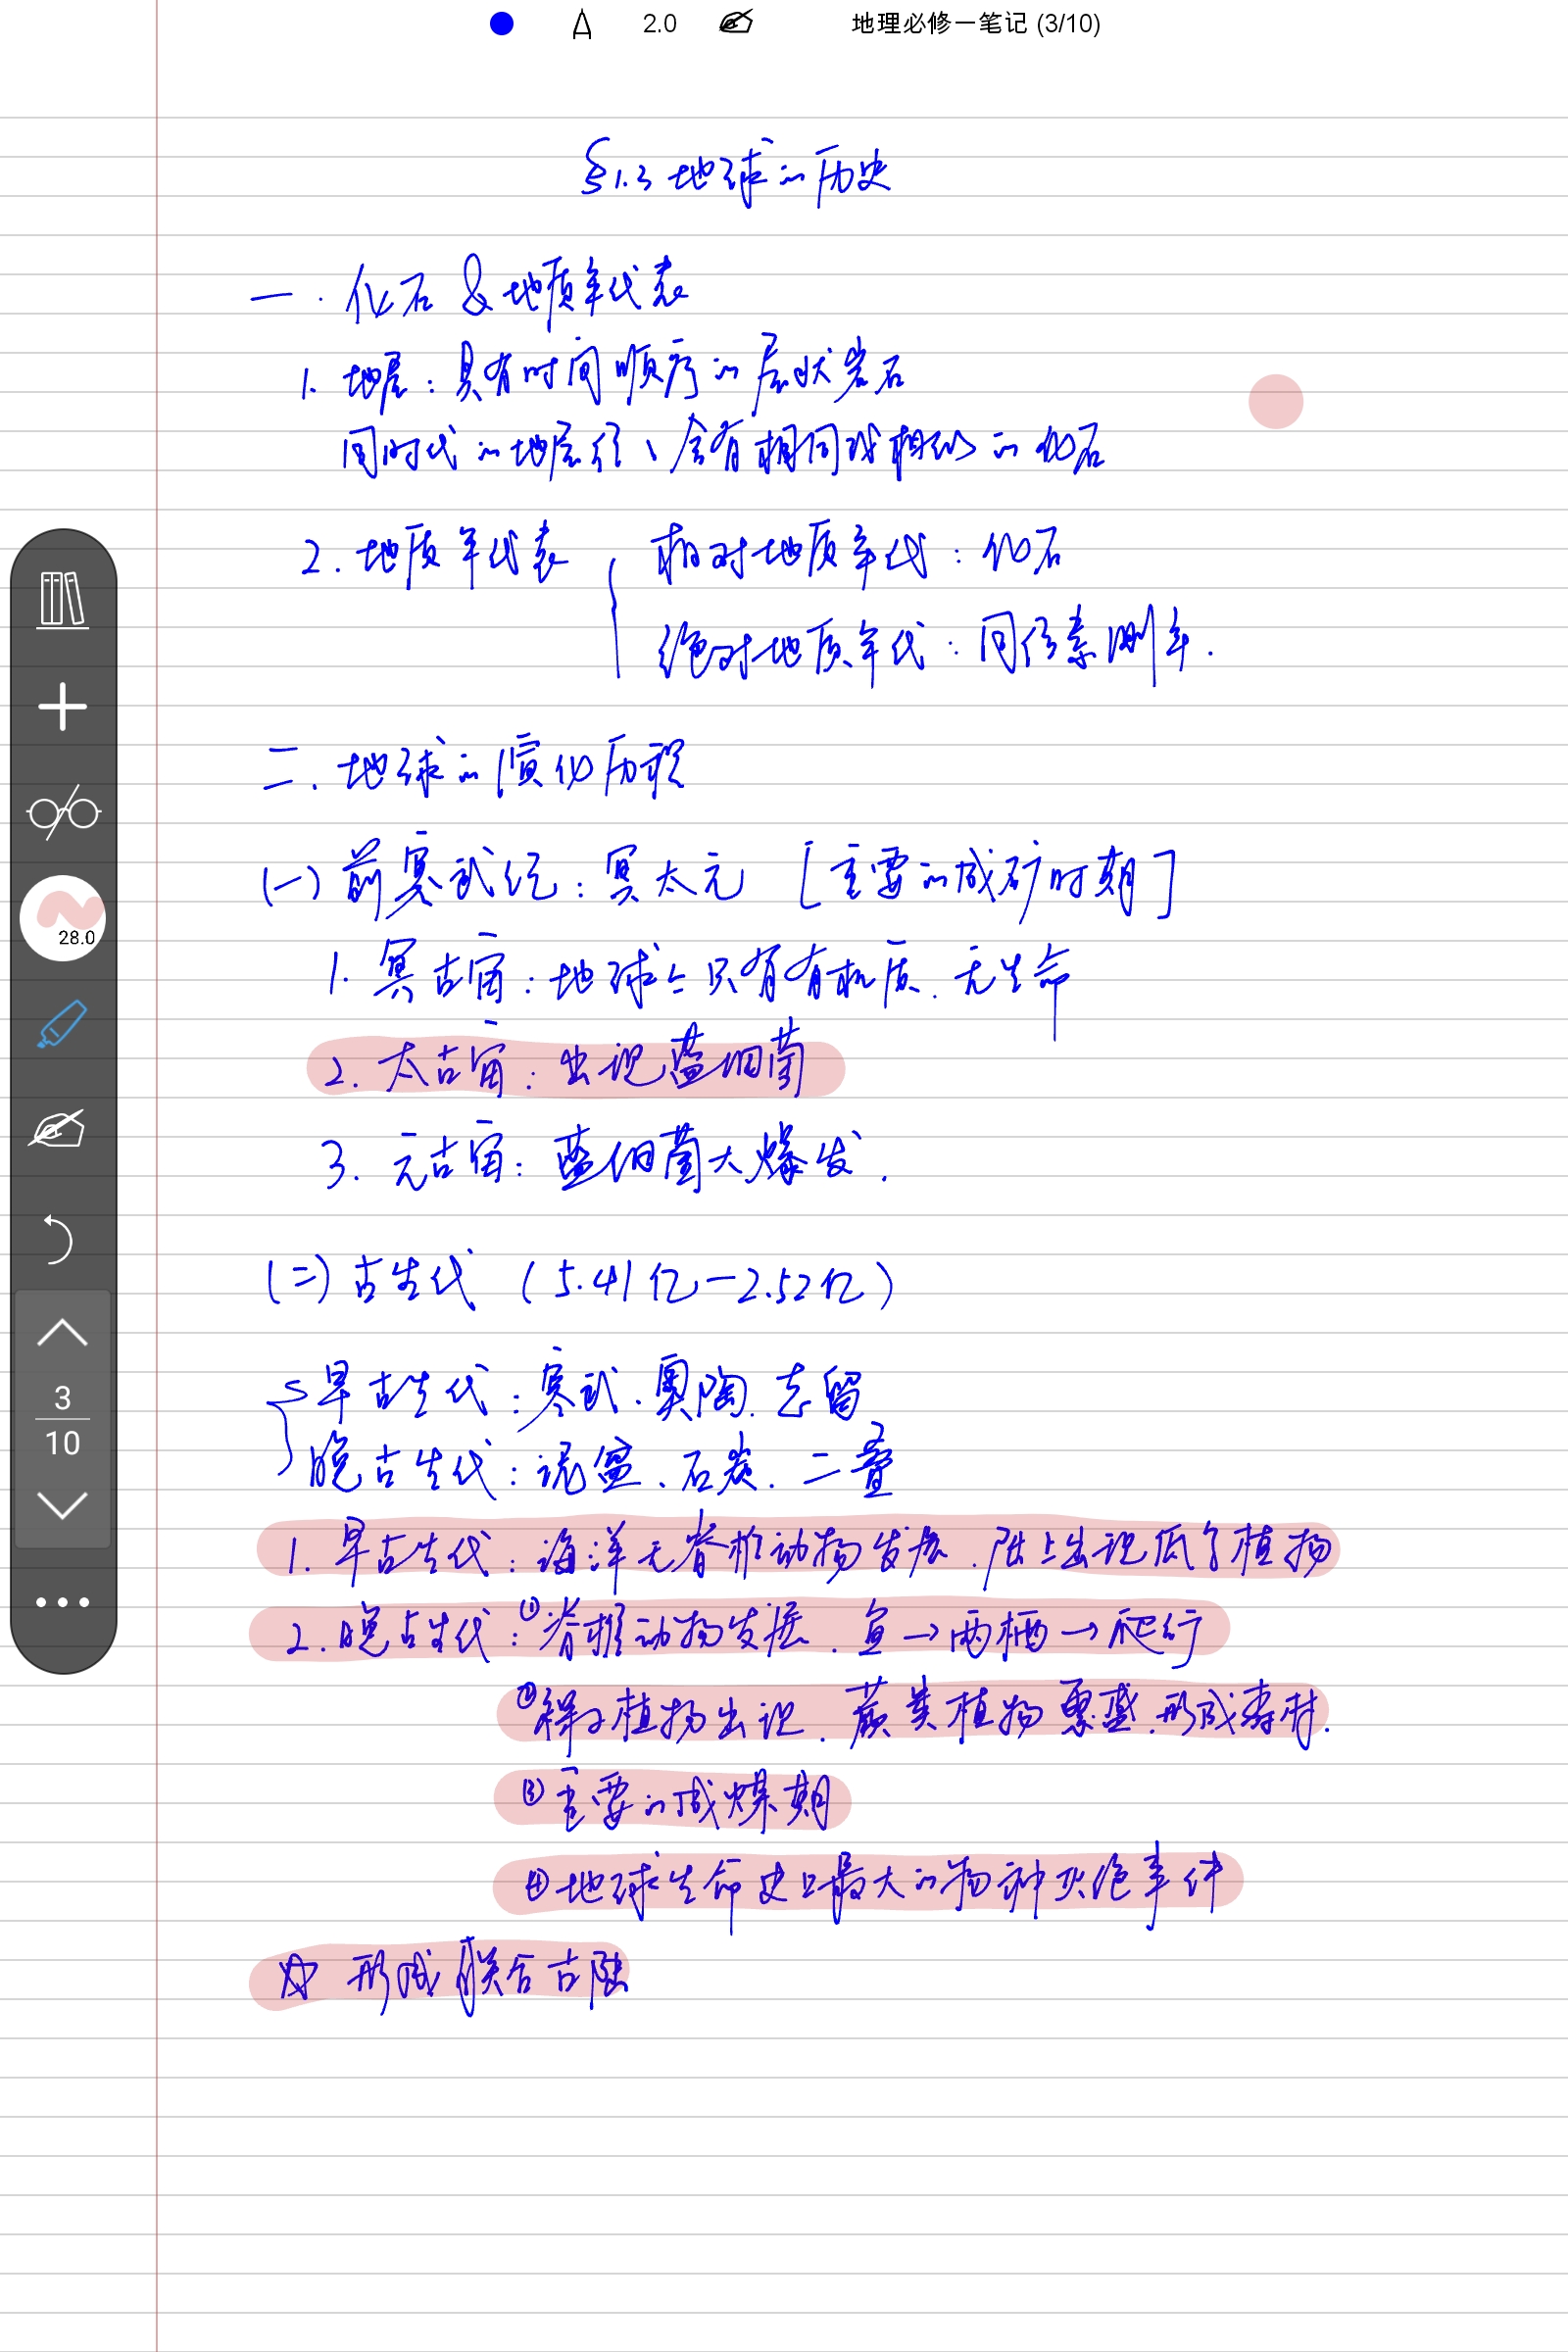 2.0 地理必修一笔记 (3/10)
§1.3 地球的历史
一. 化石 & 地质年代表
1. 地层: 具有时间顺序的层状岩石
同时代的地层往往含有相同或相似的化石
2. 地质年代表 { 相对地质年代: 化石
绝对地质年代: 同位素测年.
二. 地球的演化历程
(一) 前寒武纪: 冥太元 [主要的成矿时期]
1. 冥古宙: 地球上只有有机质. 无生命
2. 太古宙: 出现蓝细菌
28.0
3. 元古宙: 蓝细菌大爆发.
(二) 古生代 (5.41亿—2.52亿)
{ 早古生代: 寒武、奥陶、志留
晚古生代: 泥盆、石炭、二叠
3
10
1. 早古生代: 海洋无脊椎动物发展. 陆上出现低等植物
2. 晚古生代: ①脊椎动物发展. 鱼→两栖→爬行
②裸子植物出现. 蕨类植物繁盛. 形成森林.
③主要的成煤期
④地球生命史上最大的物种灭绝事件
☆ 形成联合古陆